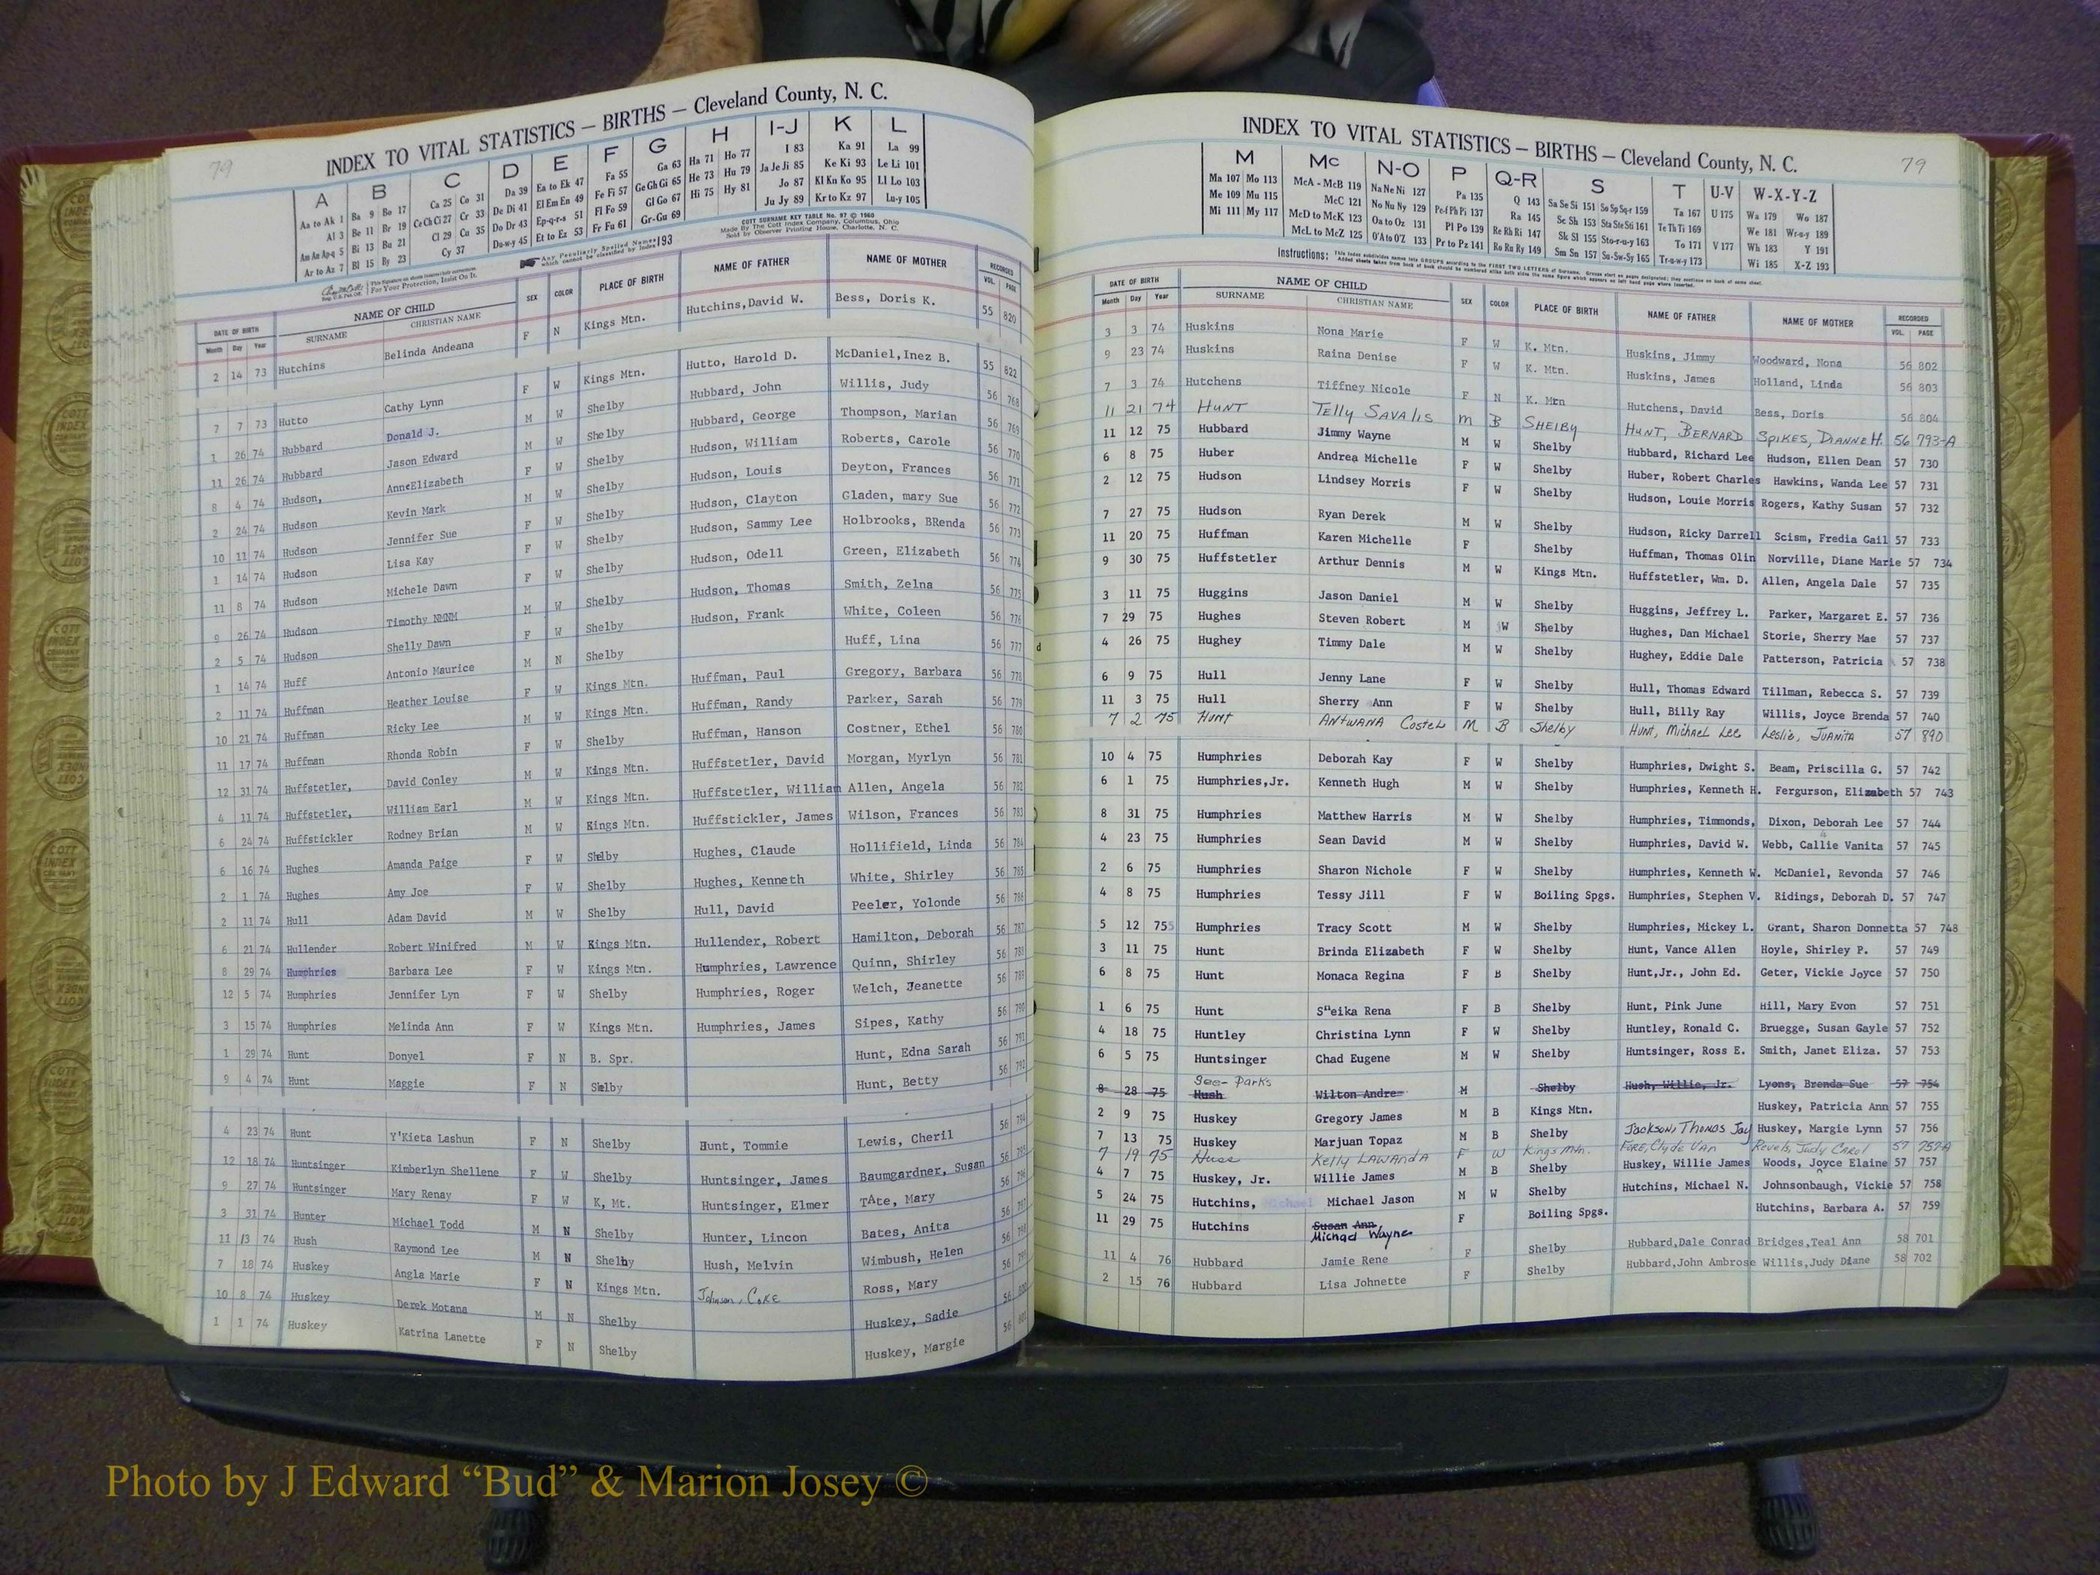 79
INDEX TO VITAL STATISTICS — BIRTHS — Cleveland County, N. C.
A B C D E F G H I-J K L
Aa to Ak 1 Ba 9 Bo 17 Ca 25 Co 31 Da 39 Ea to Ek 47 Fa 55 Ga 63 Ha 71 Ho 77 I 83 Ka 91 La 99
Al 3 Be 11 Br 19 Ce Ch Ci 27 Cr 33 De Di 41 El Em En 49 Fe Fi 57 Ge Gh Gi 65 He 73 Hu 79 Ja Je Ji 85 Ke Ki 93 Le Li 101
Am An Ap-q 5 Bi 13 Bu 21 Cl 29 Cu 35 Do Dr 43 Ep-q-r-s 51 Fl Fo 59 Gl Go 67 Hi 75 Hy 81 Jo 87 Kl Kn Ko 95 Ll Lo 103
Ar to Az 7 Bl 15 By 23 Cy 37 Du-w-y 45 Et to Ez 53 Fr Fu 61 Gr-Gu 69 Ju Jy 89 Kr to Kz 97 Lu-y 105
For Your Protection, Insist On It.
Any Peculiarly Spelled Names which cannot be classified by Index 193
COTT SURNAME KEY TABLE No. 97 © 1960
Made By The Cott Index Company, Columbus, Ohio
Sold by Observer Printing House, Charlotte, N. C.
DATE OF BIRTH NAME OF CHILD SEX COLOR PLACE OF BIRTH NAME OF FATHER NAME OF MOTHER RECORDED
Month Day Year SURNAME CHRISTIAN NAME VOL. PAGE
2 14 73 Hutchins Belinda Andeana F N Kings Mtn. Hutchins,David W. Bess, Doris K. 55 820
7 7 73 Hutto Cathy Lynn F W Kings Mtn. Hutto, Harold D. McDaniel,Inez B. 55 822
1 26 74 Hubbard Donald J. M W Shelby Hubbard, John Willis, Judy 56 768
11 26 74 Hubbard Jason Edward M W Shelby Hubbard, George Thompson, Marian 56 769
8 4 74 Hudson, AnneElizabeth F W Shelby Hudson, William Roberts, Carole 56 770
2 24 74 Hudson Kevin Mark M W Shelby Hudson, Louis Deyton, Frances 56 771
10 11 74 Hudson Jennifer Sue F W Shelby Hudson, Clayton Gladen, mary Sue 56 772
1 14 74 Hudson Lisa Kay F W Shelby Hudson, Sammy Lee Holbrooks, BRenda 56 773
11 8 74 Hudson Michele Dawn F W Shelby Hudson, Odell Green, Elizabeth 56 774
9 26 74 Hudson Timothy NMNM M W Shelby Hudson, Thomas Smith, Zelna 56 775
2 5 74 Hudson Shelly Dawn F W Shelby Hudson, Frank White, Coleen 56 776
1 14 74 Huff Antonio Maurice M N Shelby Huff, Lina 56 777
2 11 74 Huffman Heather Louise F W Kings Mtn. Huffman, Paul Gregory, Barbara 56 778
10 21 74 Huffman Ricky Lee M W Kings Mtn. Huffman, Randy Parker, Sarah 56 779
11 17 74 Huffman Rhonda Robin F W Shelby Huffman, Hanson Costner, Ethel 56 780
12 31 74 Huffstetler, David Conley M W Kings Mtn. Huffstetler, David Morgan, Myrlyn 56 781
4 11 74 Huffstetler, William Earl M W Kings Mtn. Huffstetler, William Allen, Angela 56 782
6 24 74 Huffstickler Rodney Brian M W Kings Mtn. Huffstickler, James Wilson, Frances 56 783
6 16 74 Hughes Amanda Paige F W Shelby Hughes, Claude Hollifield, Linda 56 784
2 1 74 Hughes Amy Joe F W Shelby Hughes, Kenneth White, Shirley 56 785
2 11 74 Hull Adam David M W Shelby Hull, David Peeler, Yolonde 56 786
6 21 74 Hullender Robert Winifred M W Kings Mtn. Hullender, Robert Hamilton, Deborah 56 787
8 29 74 Humphries Barbara Lee F W Kings Mtn. Humphries, Lawrence Quinn, Shirley 56 788
12 5 74 Humphries Jennifer Lyn F W Shelby Humphries, Roger Welch, Jeanette 56 789
3 15 74 Humphries Melinda Ann F W Kings Mtn. Humphries, James Sipes, Kathy 56 790
1 29 74 Hunt Donyel F N B. Spr. Hunt, Edna Sarah 56 791
9 4 74 Hunt Maggie F N Shelby Hunt, Betty 56 792
4 23 74 Hunt Y'Kieta Lashun F N Shelby Hunt, Tommie Lewis, Cheril 56 794
12 18 74 Huntsinger Kimberlyn Shellene F W Shelby Huntsinger, James Baumgardner, Susan 56 795
9 27 74 Huntsinger Mary Renay F W K, Mt. Huntsinger, Elmer TAte, Mary 56 796
3 31 74 Hunter Michael Todd M N Shelby Hunter, Lincon Bates, Anita 56 797
11 13 74 Hush Raymond Lee M N Shelby Hush, Melvin Wimbush, Helen 56 798
7 18 74 Huskey Angla Marie F N Kings Mtn. Johnson, Coke Ross, Mary 56 799
10 8 74 Huskey Derek Motana M N Shelby Huskey, Sadie 56 800
1 1 74 Huskey Katrina Lanette F N Shelby Huskey, Margie 56 801
79
INDEX TO VITAL STATISTICS — BIRTHS — Cleveland County, N. C.
M Mc N-O P Q-R S T U-V W-X-Y-Z
Ma 107 Mo 113 McA - McB 119 Na Ne Ni 127 Pa 135 Q 143 Sa Se Si 151 So Sp Sq-r 159 Ta 167 U 175 Wa 179 Wo 187
Me 109 Mu 115 McC 121 No Nu Ny 129 Pe-f Ph Pi 137 Ra 145 Sc Sh 153 Sta Ste Sti 161 Te Th Ti 169 We 181 Wr-u-y 189
Mi 111 My 117 McD to McK 123 Oa to Oz 131 Pl Po 139 Re Rh Ri 147 Sk Sl 155 Sto-r-u-y 163 To 171 V 177 Wh 183 Y 191
McL to McZ 125 O'A to O'Z 133 Pr to Pz 141 Ro Ru Ry 149 Sm Sn 157 Su-Sw-Sy 165 Tr-u-w-y 173 Wi 185 X-Z 193
Instructions: This index subdivides names into GROUPS according to the FIRST TWO LETTERS of Surname. Groups start on pages designated; they continue on back of same sheet.
Added sheets taken from back of book should be numbered alike both sides the same figure which appears on left hand page where inserted.
DATE OF BIRTH NAME OF CHILD SEX COLOR PLACE OF BIRTH NAME OF FATHER NAME OF MOTHER RECORDED
Month Day Year SURNAME CHRISTIAN NAME VOL. PAGE
3 3 74 Huskins Nona Marie F W K. Mtn. Huskins, Jimmy Woodward, Nona 56 802
9 23 74 Huskins Raina Denise F W K. Mtn. Huskins, James Holland, Linda 56 803
7 3 74 Hutchens Tiffney Nicole F N K. Mtn Hutchens, David Bess, Doris 56 804
11 21 74 HUNT TELLY SAVALIS M B SHELBY HUNT, BERNARD SPIKES, DIANNE H. 56 793-A
11 12 75 Hubbard Jimmy Wayne M W Shelby Hubbard, Richard Lee Hudson, Ellen Dean 57 730
6 8 75 Huber Andrea Michelle F W Shelby Huber, Robert Charles Hawkins, Wanda Lee 57 731
2 12 75 Hudson Lindsey Morris F W Shelby Hudson, Louie Morris Rogers, Kathy Susan 57 732
7 27 75 Hudson Ryan Derek M W Shelby Hudson, Ricky Darrell Scism, Fredia Gail 57 733
11 20 75 Huffman Karen Michelle F Shelby Huffman, Thomas Olin Norville, Diane Marie 57 734
9 30 75 Huffstetler Arthur Dennis M W Kings Mtn. Huffstetler, Wm. D. Allen, Angela Dale 57 735
3 11 75 Huggins Jason Daniel M W Shelby Huggins, Jeffrey L. Parker, Margaret E. 57 736
7 29 75 Hughes Steven Robert M W Shelby Hughes, Dan Michael Storie, Sherry Mae 57 737
4 26 75 Hughey Timmy Dale M W Shelby Hughey, Eddie Dale Patterson, Patricia 57 738
6 9 75 Hull Jenny Lane F W Shelby Hull, Thomas Edward Tillman, Rebecca S. 57 739
11 3 75 Hull Sherry Ann F W Shelby Hull, Billy Ray Willis, Joyce Brenda 57 740
7 2 75 Hunt ANTWANA Costel M B Shelby Hunt, Michael Lee Leslie, JUANITA 57 890
10 4 75 Humphries Deborah Kay F W Shelby Humphries, Dwight S. Beam, Priscilla G. 57 742
6 1 75 Humphries,Jr. Kenneth Hugh M W Shelby Humphries, Kenneth H. Fergurson, Elizabeth 57 743
8 31 75 Humphries Matthew Harris M W Shelby Humphries, Timmonds, Dixon, Deborah Lee 57 744
4 23 75 Humphries Sean David M W Shelby Humphries, David W. Webb, Callie Vanita 57 745
2 6 75 Humphries Sharon Nichole F W Shelby Humphries, Kenneth W. McDaniel, Revonda 57 746
4 8 75 Humphries Tessy Jill F W Boiling Spgs. Humphries, Stephen V. Ridings, Deborah D. 57 747
5 12 755 Humphries Tracy Scott M W Shelby Humphries, Mickey L. Grant, Sharon Donnetta 57 748
3 11 75 Hunt Brinda Elizabeth F W Shelby Hunt, Vance Allen Hoyle, Shirley P. 57 749
6 8 75 Hunt Monaca Regina F B Shelby Hunt,Jr., John Ed. Geter, Vickie Joyce 57 750
1 6 75 Hunt S"eika Rena F B Shelby Hunt, Pink June Hill, Mary Evon 57 751
4 18 75 Huntley Christina Lynn F W Shelby Huntley, Ronald C. Bruegge, Susan Gayle 57 752
6 5 75 Huntsinger Chad Eugene M W Shelby Huntsinger, Ross E. Smith, Janet Eliza. 57 753
See- Parks
8 28 75 Hush Wilton Andre M Shelby Hush, Willie, Jr. Lyons, Brenda Sue 57 754
2 9 75 Huskey Gregory James M B Kings Mtn. Huskey, Patricia Ann 57 755
7 13 75 Huskey Marjuan Topaz M B Shelby Jackson, Thomas Jay Huskey, Margie Lynn 57 756
7 19 75 Huss Kelly LAWANDA F W Kings Mtn. FORE, Clyde VAN Revels, Judy Carol 57 757-A
4 7 75 Huskey, Jr. Willie James M B Shelby Huskey, Willie James Woods, Joyce Elaine 57 757
5 24 75 Hutchins, Michael Michael Jason M W Shelby Hutchins, Michael N. Johnsonbaugh, Vickie 57 758
11 29 75 Hutchins Susan Ann F Boiling Spgs. Hutchins, Barbara A. 57 759
Michael Wayne
11 4 76 Hubbard Jamie Rene F Shelby Hubbard,Dale Conrad Bridges,Teal Ann 58 701
2 15 76 Hubbard Lisa Johnette F Shelby Hubbard,John Ambrose Willis,Judy Diane 58 702
Photo by J Edward “Bud” & Marion Josey ©